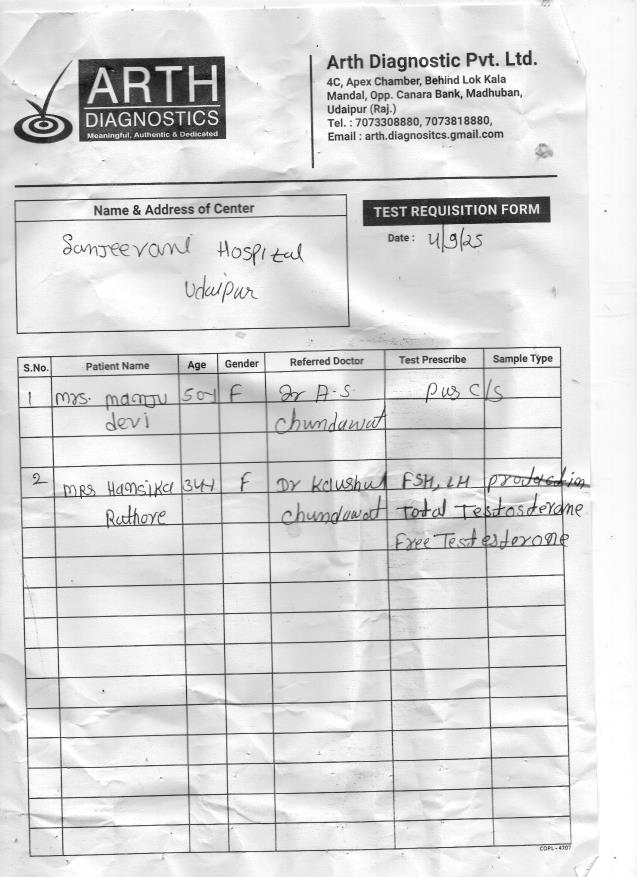 ARTH
DIAGNOSTICS
Meaningful, Authentic & Dedicated
Arth Diagnostic Pvt. Ltd.
4C, Apex Chamber, Behind Lok Kala
Mandal, Opp. Canara Bank, Madhuban,
Udaipur (Raj.)
Tel. : 7073308880, 7073818880,
Email : arth.diagnositcs.gmail.com
Name & Address of Center
Sanjeevani Hospital
Udaipur
TEST REQUISITION FORM
Date : 4/9/25
S.No. Patient Name Age Gender Referred Doctor Test Prescribe Sample Type
1 Mrs. Manju 50Y F Dr A.S. Pus C/S
devi Chundawat
2 Mrs Hansika 34Y F Dr Kaushal FSH, LH
Rathore Chundawat Total Testosterone
Free Testesterone
COPL-4707